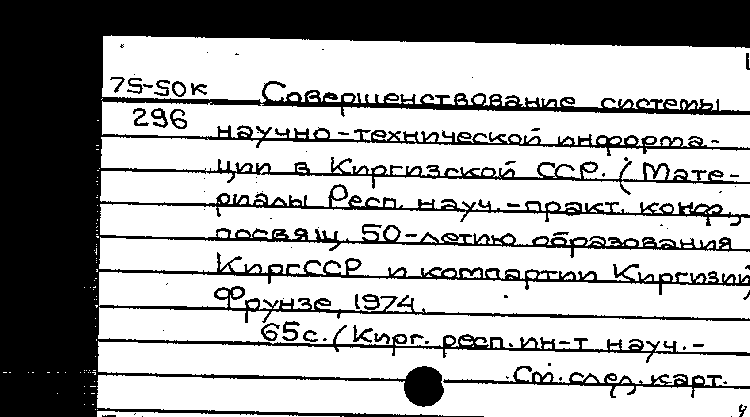 75-50к Совершенствование системы
296 научно-технической информа-
ции в Киргизской ССР. (Мате-
риалы Респ. науч.-практ. конф.,
посвящ. 50-летию образования
КиргССР и компартии Киргизии)
Фрунзе, 1974.
65с. (Кирг. респ. ин-т науч.-
См. след. карт.